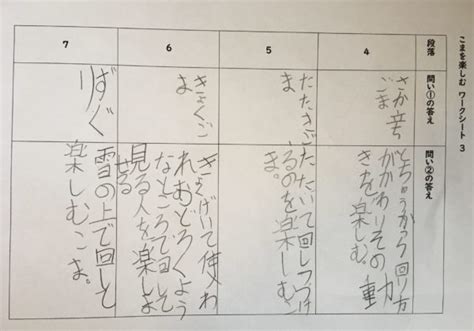 こまを楽しむ ワークシート 3
段落
問い①の答え
問い②の答え
4
さか立ち
ごま
とちゅうから回り方
がかわりその動
きを楽しむ。
5
たたきご
ま
たたいて回しつづけ
るのを楽しむこ
ま。
6
きょくご
ま
きょくげいで使わ
れおどろくよう
なところで回して
見る人を楽しま
せる
7
ずぐ
り
雪の上で回して
楽しむこま。